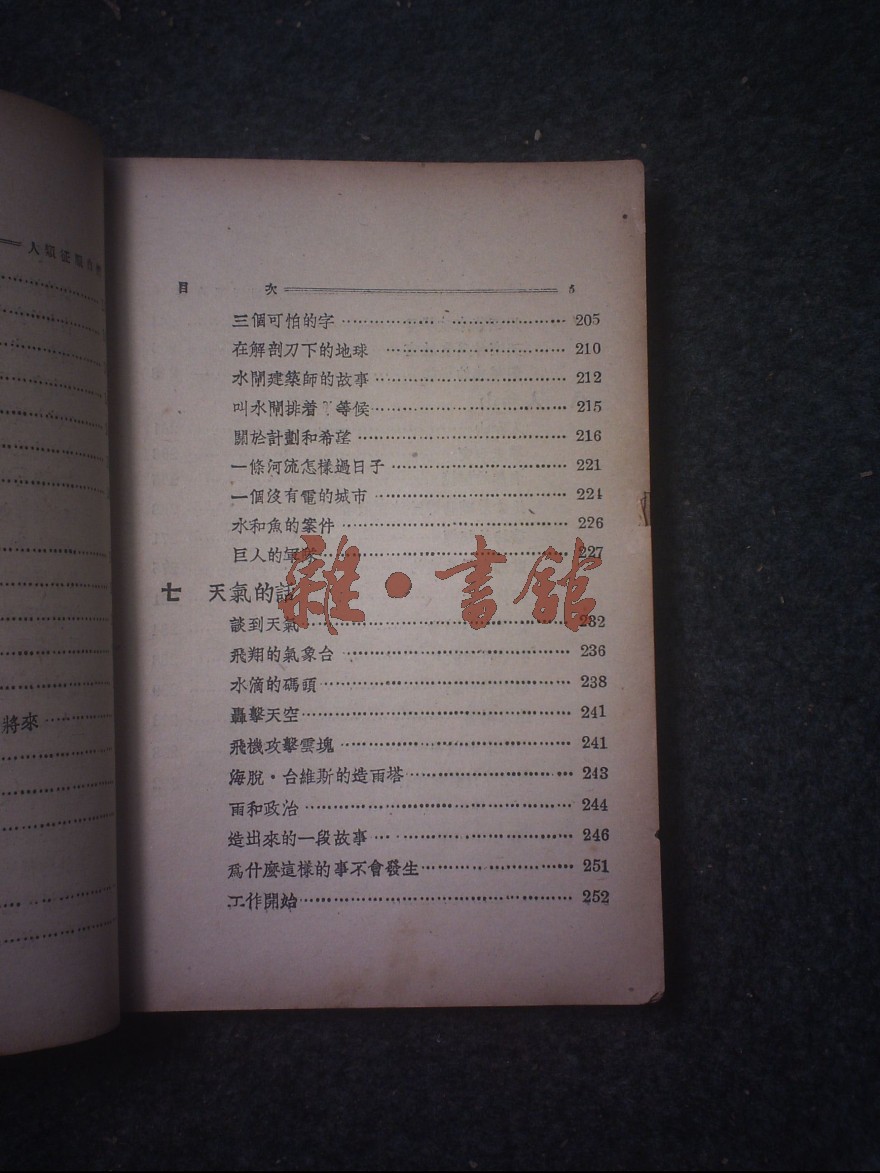 人類征服自然
將來
目 次 5
三個可怕的字 205
在解剖刀下的地球 210
水閘建築師的故事 212
叫水閘排着 等候 215
關於計劃和希望 216
一條河流怎樣過日子 221
一個沒有電的城市 224
水和魚的案件 226
巨人的軍隊 227
七 天氣的話
談到天氣 232
飛翔的氣象台 236
水滴的碼頭 238
轟擊天空 241
飛機攻擊雲塊 241
海脫·台維斯的造雨塔 243
雨和政治 244
造出來的一段故事 246
爲什麼這樣的事不會發生 251
工作開始 252
雜·書館